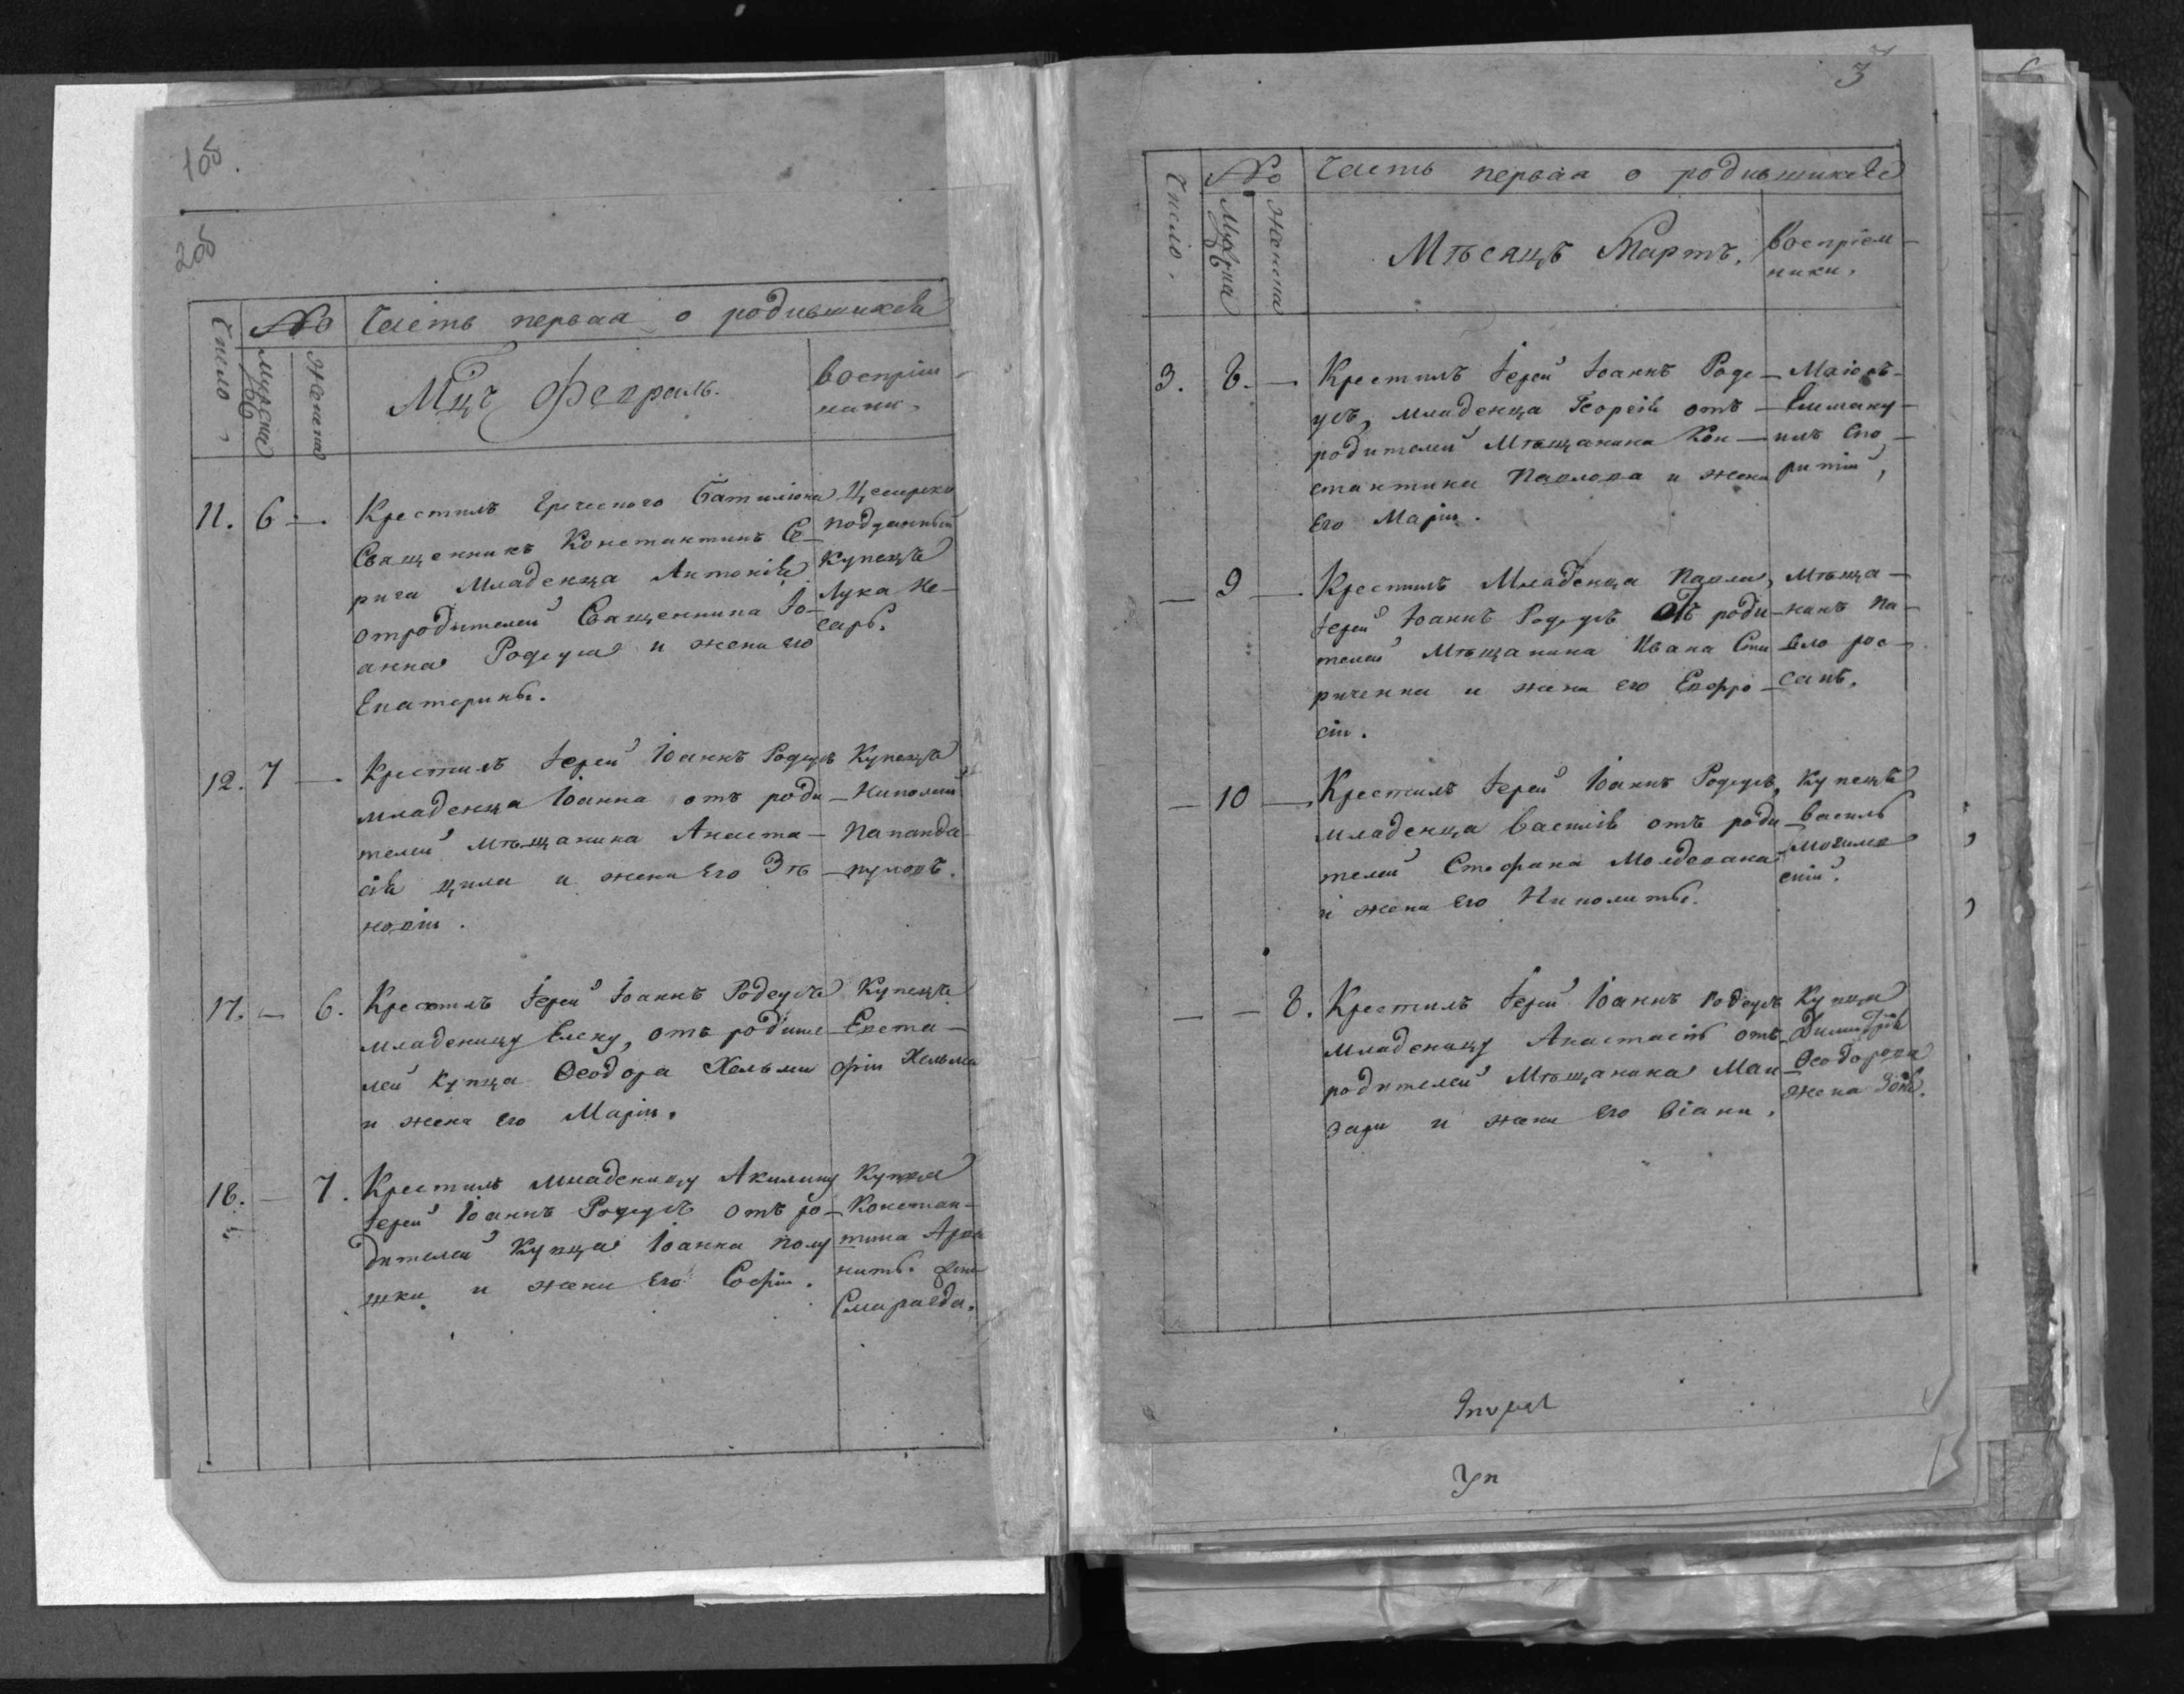 1об.
2об
Число
№
Мужска
Женска
Часть первая о родившихся
Мцъ Февраль.
восприем-
ники
11. 6 —
Крестилъ Греческого Баталиона
Священникъ Константинъ Се-
рига Младенца Антонія
отродителей Священника Іо-
анна Родеуса и жены его
Екатерины.
Цесарско
подданный
Купецъ
Лука Не-
сарь.
12. 7 —
Крестилъ Іерей Іоаннъ Родеусъ
младенца Іоанна отъ роди-
телей Мѣщанина Анаста-
сія цила и жены его Зѣ
новіи.
Купецъ
Николай
Папанда-
пуловъ.
17. — 6.
Крестилъ Іерей Іоаннъ Родеусъ
младеницу Елену, отъ родите-
лей купца Феодора Хельми
и жены его Маріи.
Купецъ
Евста-
фій Хельми
18. — 7.
Крестилъ младеницу Акилину
Іерей Іоаннъ Родеусъ отъ ро-
дителей Купца Іоанна полу
жки и жены его Софіи.
Купца
Констан-
тина
жена
Смарагда.
3
Число.
№
Мужска
Женска
Часть первая о родившихся
Мѣсяцъ Мартъ.
восприем-
ники.
3. 8. —
Крестилъ Іерей Іоаннъ Роде-
усъ, младенца Георгія отъ
родителей Мѣщанина Кон-
стантина Павлова и жены
его Маріи.
Маіоръ
Емману-
илъ Спо-
ритій,
— 9 —
Крестилъ Младенца Павла,
Іерей Іоаннъ Родеусъ отъ роди-
телей Мѣщанина Ивана Спи
риченка и жены его Евфро-
сіи.
Мѣща-
нинъ Па-
вло рос-
санъ.
— 10 —
Крестилъ Іерей Іоаннъ Родеусъ,
младенца Василія отъ роди-
телей Стефана Молдована
и жены его Ипполиты.
Купецъ
Василь
Могилев
скій.
— — 8.
Крестилъ Іерей Іоаннъ Родеусъ
младеницу Анастасію отъ
родителей Мѣщанина Ман-
зари и жены его Віани.
Купца
Димитрія
Феодорова
жена Зоя.
Ун